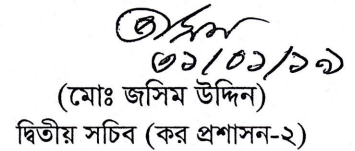 ০১/০১/১৯
(মোঃ জসিম উদ্দিন)
দ্বিতীয় সচিব (কর প্রশাসন-২)